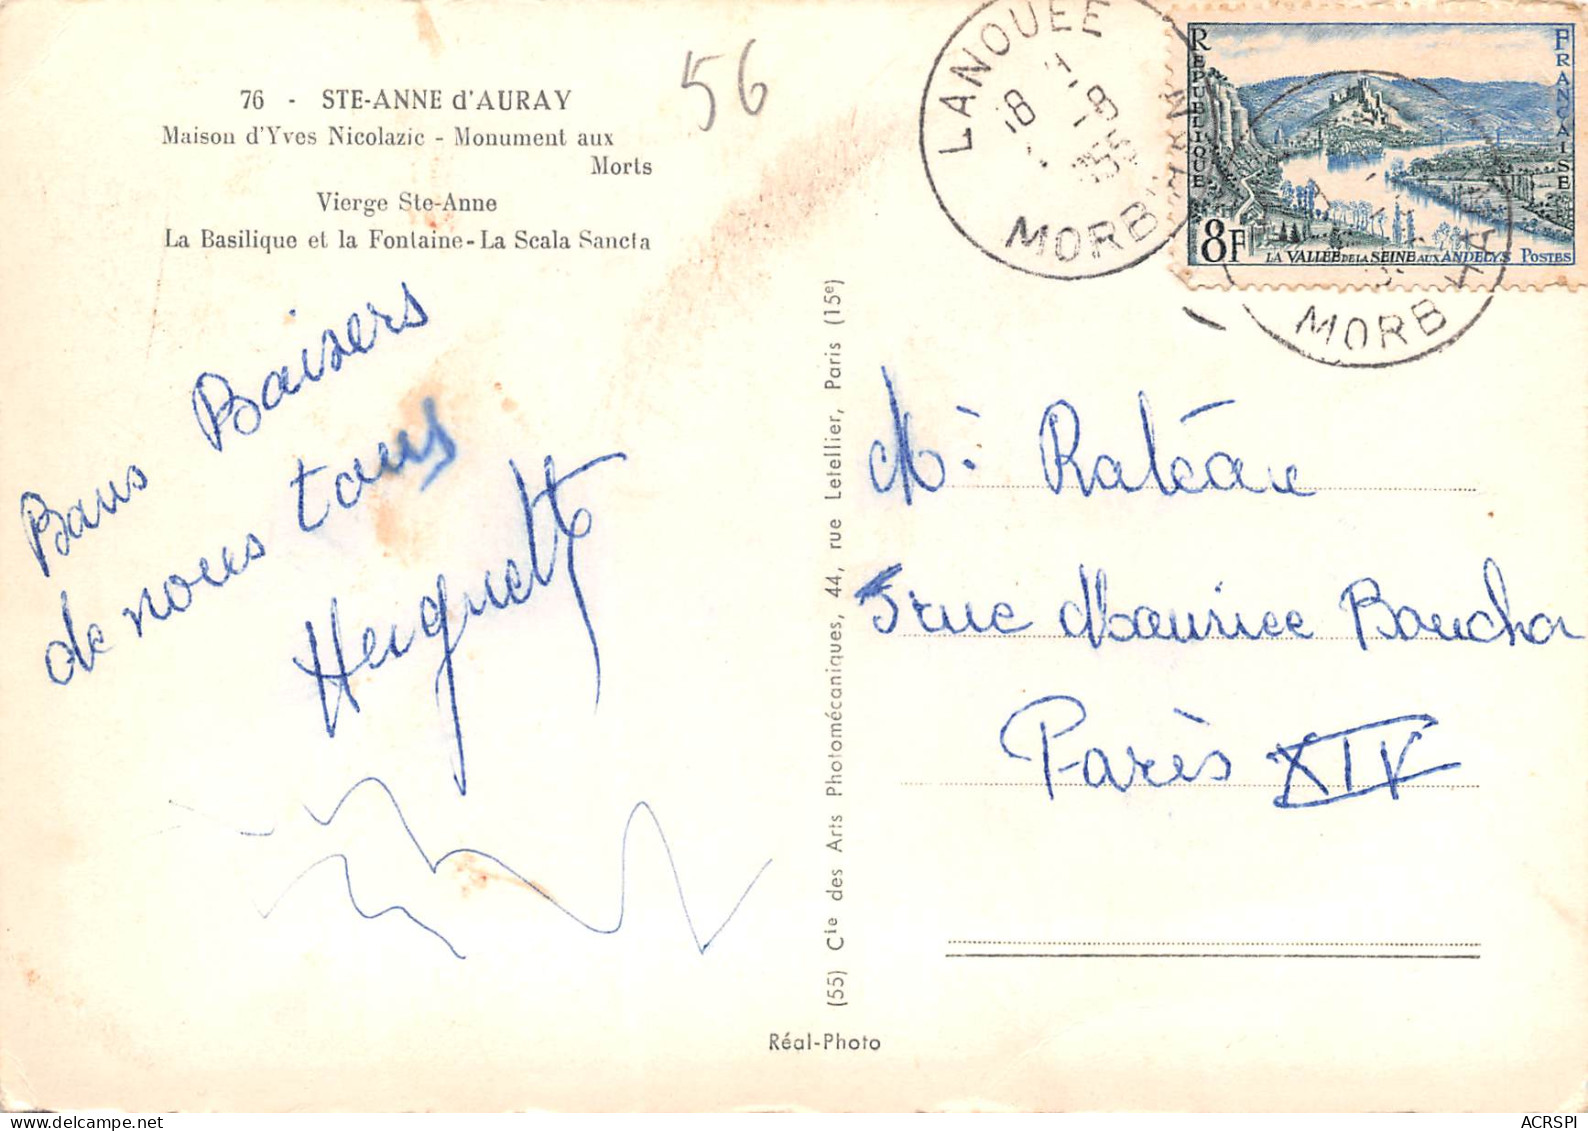 76 - STE-ANNE d'AURAY
Maison d'Yves Nicolazic - Monument aux
Morts
Vierge Ste-Anne
La Basilique et la Fontaine - La Scala Sancta
56
Bons Baisers
de nous tous
Huguette
(55) Cie des Arts Photomécaniques, 44, rue Letellier, Paris (15e)
Réal-Photo
LANOUEE
18
1-8
1955
MORBIHAN
REPUBLIQUE
FRANÇAISE
8F
LA VALLÉE DE LA SEINE AUX ANDELYS POSTES
MORBIHAN
Mr Ratéau
5 rue Maurice Bouchor
Paris XIV
ACRSPI